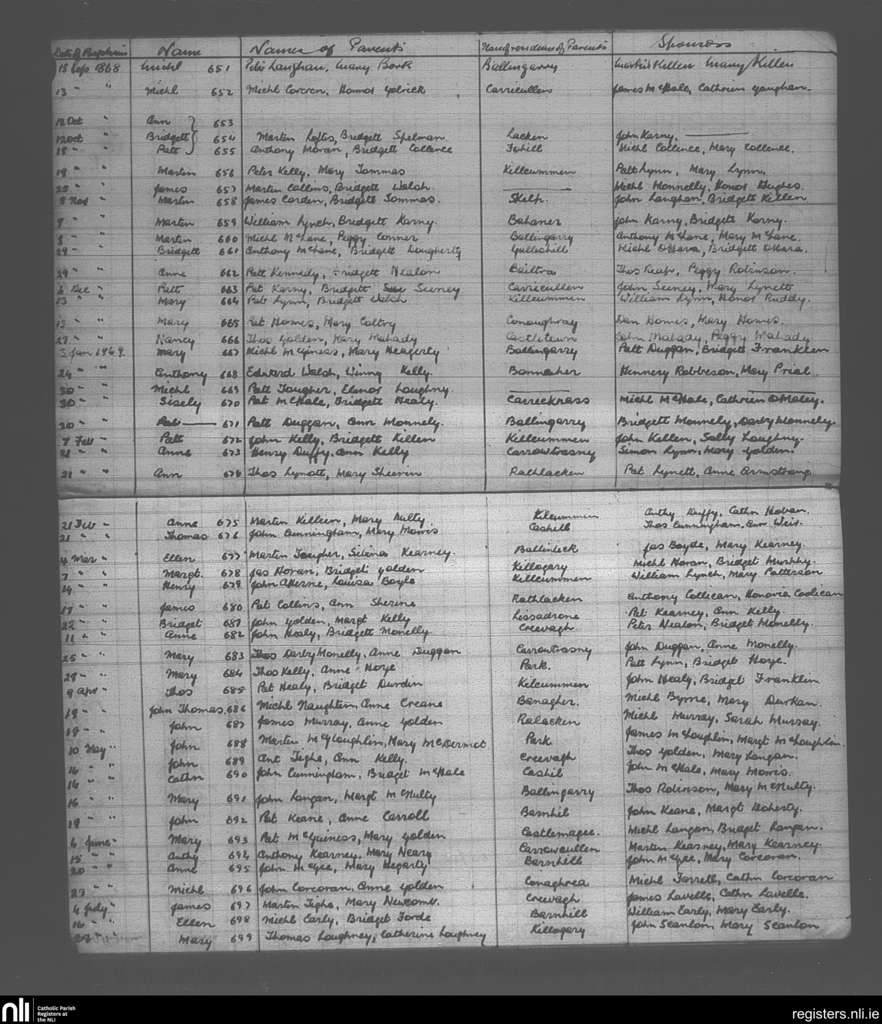 Date of Baptism Name Names of Parents Place of residence of Parents Sponsors
15 Sep. 1868 Michl 651 Peter Langhan, Mary Bork Ballingarry Killen Mary Killen
13 " " Michl 652 Michl Corcoran, Honor Carricullen James McHale, Cathrien
12 Oct Ann 653
12 Oct Bridgett 654 Martin Loftis, Bridgett Spelman Lacken John Karny.
18 " " Patt 655 Anthony Moran, Bridgett Collence Michl Collence, Mary Collence.
19 " " Martin 656 Peter Kelly, Mary Tommas Killcummen Patt Lynn, Mary Lynn,
25 " " James 657 Martin Collins, Bridgett Walsh. Michl Monnelly, Honor Hughes.
8 Nov " Martin 658 James Corden, Bridgett Tommas. Skelp. John Langhan, Bridgett Killen
9 " " Martin 659 William Lynch, Bridgett Karny. Bahaner John Karny, Bridgett Karny.
8 " " Martin 660 Michl McHane, Peggy Conner Ballingarry Anthony McHane, Mary McHane.
29 " " Bridgett 661 Anthony McHane, Bridgett Dougherty Michl OHara, Bridgett OHara.
29 " " Anne 662 Patt Kennedy, Bridgett Nealon Thos Peggy Robinson.
6 Dec " Patt 663 Pat Karny, Bridgett Seeney Carricullen John Seeney, Mary Lynett
13 " " Mary 664 Patt Lynn, Bridgett Walsh Killcummen William Lynn, Honor Ruddy.
15 " " Mary 665 Pat Homes, Mary Coltry Conoughray Dan Homes, Mary Homes.
27 " " Nancy 666 Thos Golden, Mary Mahady Castletown Mahady, Peggy Mahady
3 Jan 1869. Mary 667 Michl McGiness, Mary Heagerty Ballingarry Patt Duggan, Bridgett Franklien
24 " " Anthony 668 Edward Walsh, Winny Kelly. Bonnaher Hennery Robbeson, Mary Prial.
30 " " Michl 669 Patt Taugher, Elenor Loughny.
30 " " Sisely 670 Pat McHale, Bridgett Healy. Carrickrass Michl McHale, Cathrien OMaley.
30 " " 671 Patt Duggan, Ann Monnely. Ballingarry Bridgett Monnely, Darby Monnely.
7 Feb " Patt 672 John Kelly, Bridgett Killen Killcummen John Kellen, Sally Loughny.
21 " " Anne 673 Henry Duffy, Ann Kelly Carrowtrasny Simon Lynn, Mary Golden.
21 " " Ann 674 Thos Lynott, Mary Sheerin Rathlacken Pat Lynett, Anne Armstrong
21 Feb " Anne 675 Martin Killeen, Mary Nulty. Kilcummen Anthy Duffy, Cathn Hoban.
21 " " Thomas 676 John Cunningham, Mary Morris Cashell Thos Cunningham, Ann Weir.
4 Mar " Ellen 677 Martin Taugher, Selina Kearney. Ballinleck Jas Boyde, Mary Kearney.
7 " " Margt. 678 Jas Horan, Bridget Golden Killogary Michl Horan, Bridget Murphy.
14 " " Henry 679 John Aherne, Louisa Boyle Killcummen William Lynch, Mary Patterson
17 " " James 680 Pat Collins, Ann Sherine Rathlacken Anthony Collican, Honoria Coolican
22 " " Bridget 681 John Golden, Margt Kelly Lissadrone Pat Kearney, Ann Kelly.
11 " " Anne 682 John Healy, Bridgett Monelly Creevagh Peter Nealon, Bridget Monelly.
25 " " Mary 683 Thos Darby Monelly, Anne Duggan Carrowtrasny John Duggan, Anne Monelly.
29 " " Mary 684 Thos Kelly, Anne Hoye Park. Patt Lynn, Bridget Hoye.
9 Apr " Thos 685 Pat Healy, Bridget Durdin Kilcummen John Healy, Bridget Franklin
19 " " John Thomas 686 Michl Naughten, Anne Creane Banagher. Michl Byrne, Mary Durkan.
19 " " John 687 James Murray, Anne Golden Ralacken Michl Murray, Sarah Murray.
10 May " John 688 Martin McLoughlin, Mary McDermot Park James McLoughlin, Margt McLoughlin.
16 " " John 689 Ant Tighe, Ann Kelly. Creevagh Thos Golden, Mary Langan.
16 " " Cathn 690 John Cunningham, Bridget McHale Cashil John McHale, Mary Morris.
16 " " Mary 691 John Langan, Margt McNulty Ballingarry Thos Robinson, Mary McNulty.
19 " " John 692 Pat Keane, Anne Carroll Barnhil John Keane, Margt Doherty.
6 June " Mary 693 Pat McGuiness, Mary Golden Castlemagee. Michl Langan, Bridget Langan.
15 " " Anthy 694 Anthony Kearney, Mary Neary Carrowcullen Martin Kearney, Mary Kearney.
20 " " Anne 695 John McGee, Mary Hegarty Barnhill John McGee, Mary Corcoran.
23 " " Michl 696 John Corcoran, Anne Golden Conaghrea Michl Ferrelt, Cathn Corcoran
4 July " James 697 Martin Tighe, Mary Newcomb. Creevagh James Lavelle, Cathn Lavelle.
16 " " Ellen 698 Michl Early, Bridget Forde Barnhill William Early, Mary Early.
Mary 699 Thomas Loughney, Catherine Loughney Killogary John Scanlon, Mary Scanlon
nli Catholic Parish Registers at the NLI registers.nli.ie